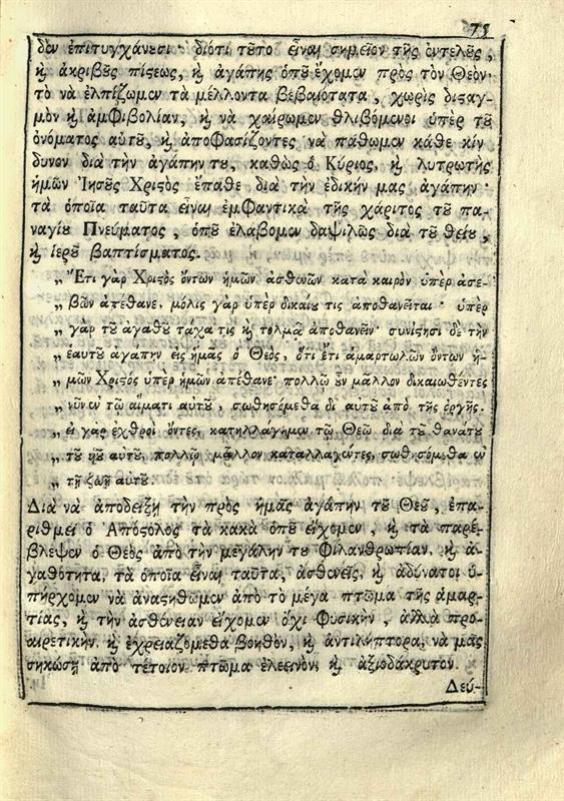 75
δὲν ἐπιτυγχάνουσι· διότι τοῦτο εἶναι σημεῖον τῆς ἐντελοῦς,
ϗ ἀκριβοῦς πίστεως, ϗ ἀγάπης ὁποῦ ἔχομεν πρὸς τὸν Θεόν·
τὸ νὰ ἐλπίζωμεν τὰ μέλλοντα βεβαιότατα, χωρὶς δισταγ-
μὸν ϗ ἀμφιβολίαν, ϗ νὰ χαίρωμεν θλιβόμενοι ὑπὲρ τοῦ
ὀνόματος αὐτοῦ, ϗ ἀποφασίζοντες νὰ πάθωμεν κάθε κίν
δυνον διὰ τὴν ἀγάπην του, καθὼς ὁ Κύριος, ϗ λυτρωτὴς
ἡμῶν Ἰησοῦς Χριστὸς ἔπαθε διὰ τὴν ἐδικήν μας ἀγάπην·
τὰ ὁποῖα ταῦτα εἶναι ἐμφαντικὰ τῆς χάριτος τοῦ πα-
ναγίου Πνεύματος, ὁποῦ ἐλάβομεν δαψιλῶς διὰ τοῦ θείου,
ϗ ἱεροῦ βαπτίσματος.
„ Ἔτι γὰρ Χριστὸς ὄντων ἡμῶν ἀσθενῶν κατὰ καιρὸν ὑπὲρ ἀσε-
„ βῶν ἀπέθανε. μόλις γὰρ ὑπὲρ δικαίου τις ἀποθανεῖται· ὑπὲρ
„ γὰρ τοῦ ἀγαθοῦ τάχα τις ϗ τολμᾷ ἀποθανεῖν· συνίστησι δὲ τὴν
„ ἑαυτοῦ ἀγάπην εἰς ἡμᾶς ὁ Θεὸς, ὅτι ἔτι ἁμαρτωλῶν ὄντων ἡ-
„ μῶν Χριστὸς ὑπὲρ ἡμῶν ἀπέθανε· πολλῷ οὖν μᾶλλον δικαιωθέντες
„ νῦν ἐν τῷ αἵματι αὐτοῦ, σωθησόμεθα δι' αὐτοῦ ἀπὸ τῆς ὀργῆς.
„ εἰ γὰρ ἐχθροὶ ὄντες, κατηλλάγημεν τῷ Θεῷ διὰ τοῦ θανάτου
„ τοῦ υἱοῦ αὐτοῦ, πολλῷ μᾶλλον καταλλαγέντες, σωθησόμεθα ἐν
„ τῇ ζωῇ αὐτοῦ.
Διὰ νὰ ἀποδείξῃ τὴν πρὸς ἡμᾶς ἀγάπην τοῦ Θεοῦ, ἐπα-
ριθμεῖ ὁ Ἀπόστολος τὰ κακὰ ὁποῦ εἴχομεν, ϗ τὰ παρέ-
βλεψεν ὁ Θεὸς ἀπὸ τὴν μεγάλην του φιλανθρωπίαν, ϗ ἀ-
γαθότητα, τὰ ὁποῖα εἶναι ταῦτα, ἀσθενεῖς, ϗ ἀδύνατοι ὑ-
πήρχομεν νὰ ἀναστηθῶμεν ἀπὸ τὸ μέγα πτῶμα τῆς ἁμαρ-
τίας, ϗ τὴν ἀσθένειαν εἴχομεν ὄχι φυσικὴν, ἀλλὰ προ-
αιρετικὴν, ϗ ἐχρειαζόμεθα βοηθὸν, ϗ ἀντιλήπτορα, νὰ μᾶς
σηκώσῃ ἀπὸ τέτοιον πτῶμα ἐλεεινὸν, ϗ ἀξιοδάκρυτον.
Δεύ-